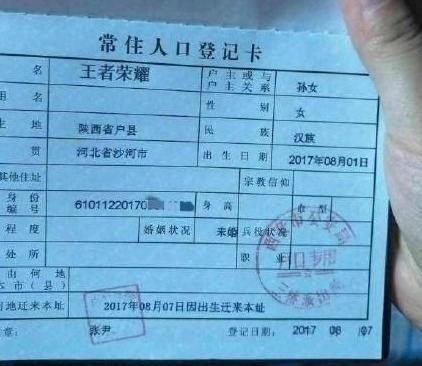 常住人口登记卡
名 王者荣耀 户主或与户主关系 孙女
用名 性别 女
生地 陕西省户县 民族 汉族
贯 河北省沙河市 出生日期 2017年08月01日
其他住址 宗教信仰
身份编号 61011220170 身高 血型
程度 婚姻状况 未婚 兵役状况
处所 职业
由何地
市（县）
何地迁来本址 2017年08月07日因出生迁来本址
章： 张尹 登记日期： 2017 08 07